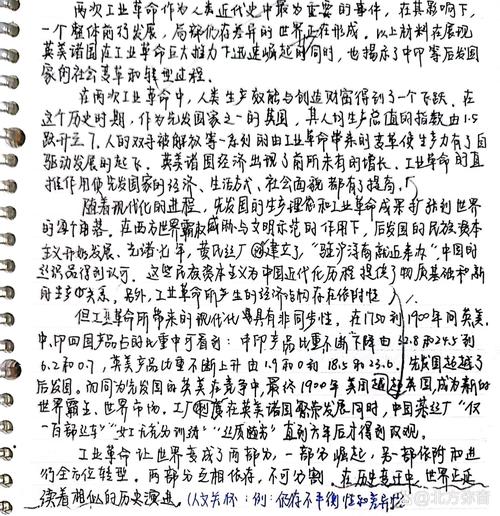 两次工业革命作为人类近代史中最为重要的事件，在其影响下，
一个整体前行发展，局部仍存差异的世界正在形成。以上材料在展现
英美诸国在工业革命巨大推力下迅速崛起的同时，也揭示了中印等后发国
家的社会变革和转型过程。
在两次工业革命中，人类生产效能与创造财富得到了一个飞跃。在
这个历史时期，作为先发国家之一的英国，其人均生产总值指数由1.5
跃升至7，人的双手被解放等一系列的由工业革命带来的变革使生产力有了自
驱动发展的起飞。英美诸国经济出现了前所未有的增长。工业革命的直
接作用使先发国家的经济、生活方式、社会面貌都有了提高。
随着现代化的进程，先发国的生产理念和工业革命成果扩张到世界
的各个角落。在西方世界霸权威胁与文明示范的作用下，后发国的民族资本
主义开始发展。光绪七年，黄氏丝厂建立了，“驻沪洋商就近奉办”中国的
丝织品得到认可。这些民族资本主义为中国近代化历程提供了物质基础和新
的生产关系。另外，工业革命所产生的经济结构存在传时性
但工业革命所带来的现代化是具有非同步性。在1750到1900年间英美、
中、印四国产品占的比重中可看到：中印产品比重不断下降由32.8和24.5到
6.2和0.7，英美产品比重不断上升由1.9和0到18.5和23.6，先发国超越了
后发国。而同为先发国的英美在竞争中，最终1900年美国超越英国，成为新的
世界霸主。世界市场，工厂制度在英美诸国繁荣发展同时，中国某丝厂“仅
一百部丝车”“女工尤先训练”“丝质尚劣”直到六年后才得到改观。
工业革命让世界变成了两部分，一部分崛起，另一部分附和进
行全方位转型。两部分互相依存，不可分割，在历史变迁中，世界正延
续着相似的历史演进。（人文关怀：例：依存不平衡性和差异性
知乎 @北方弥音